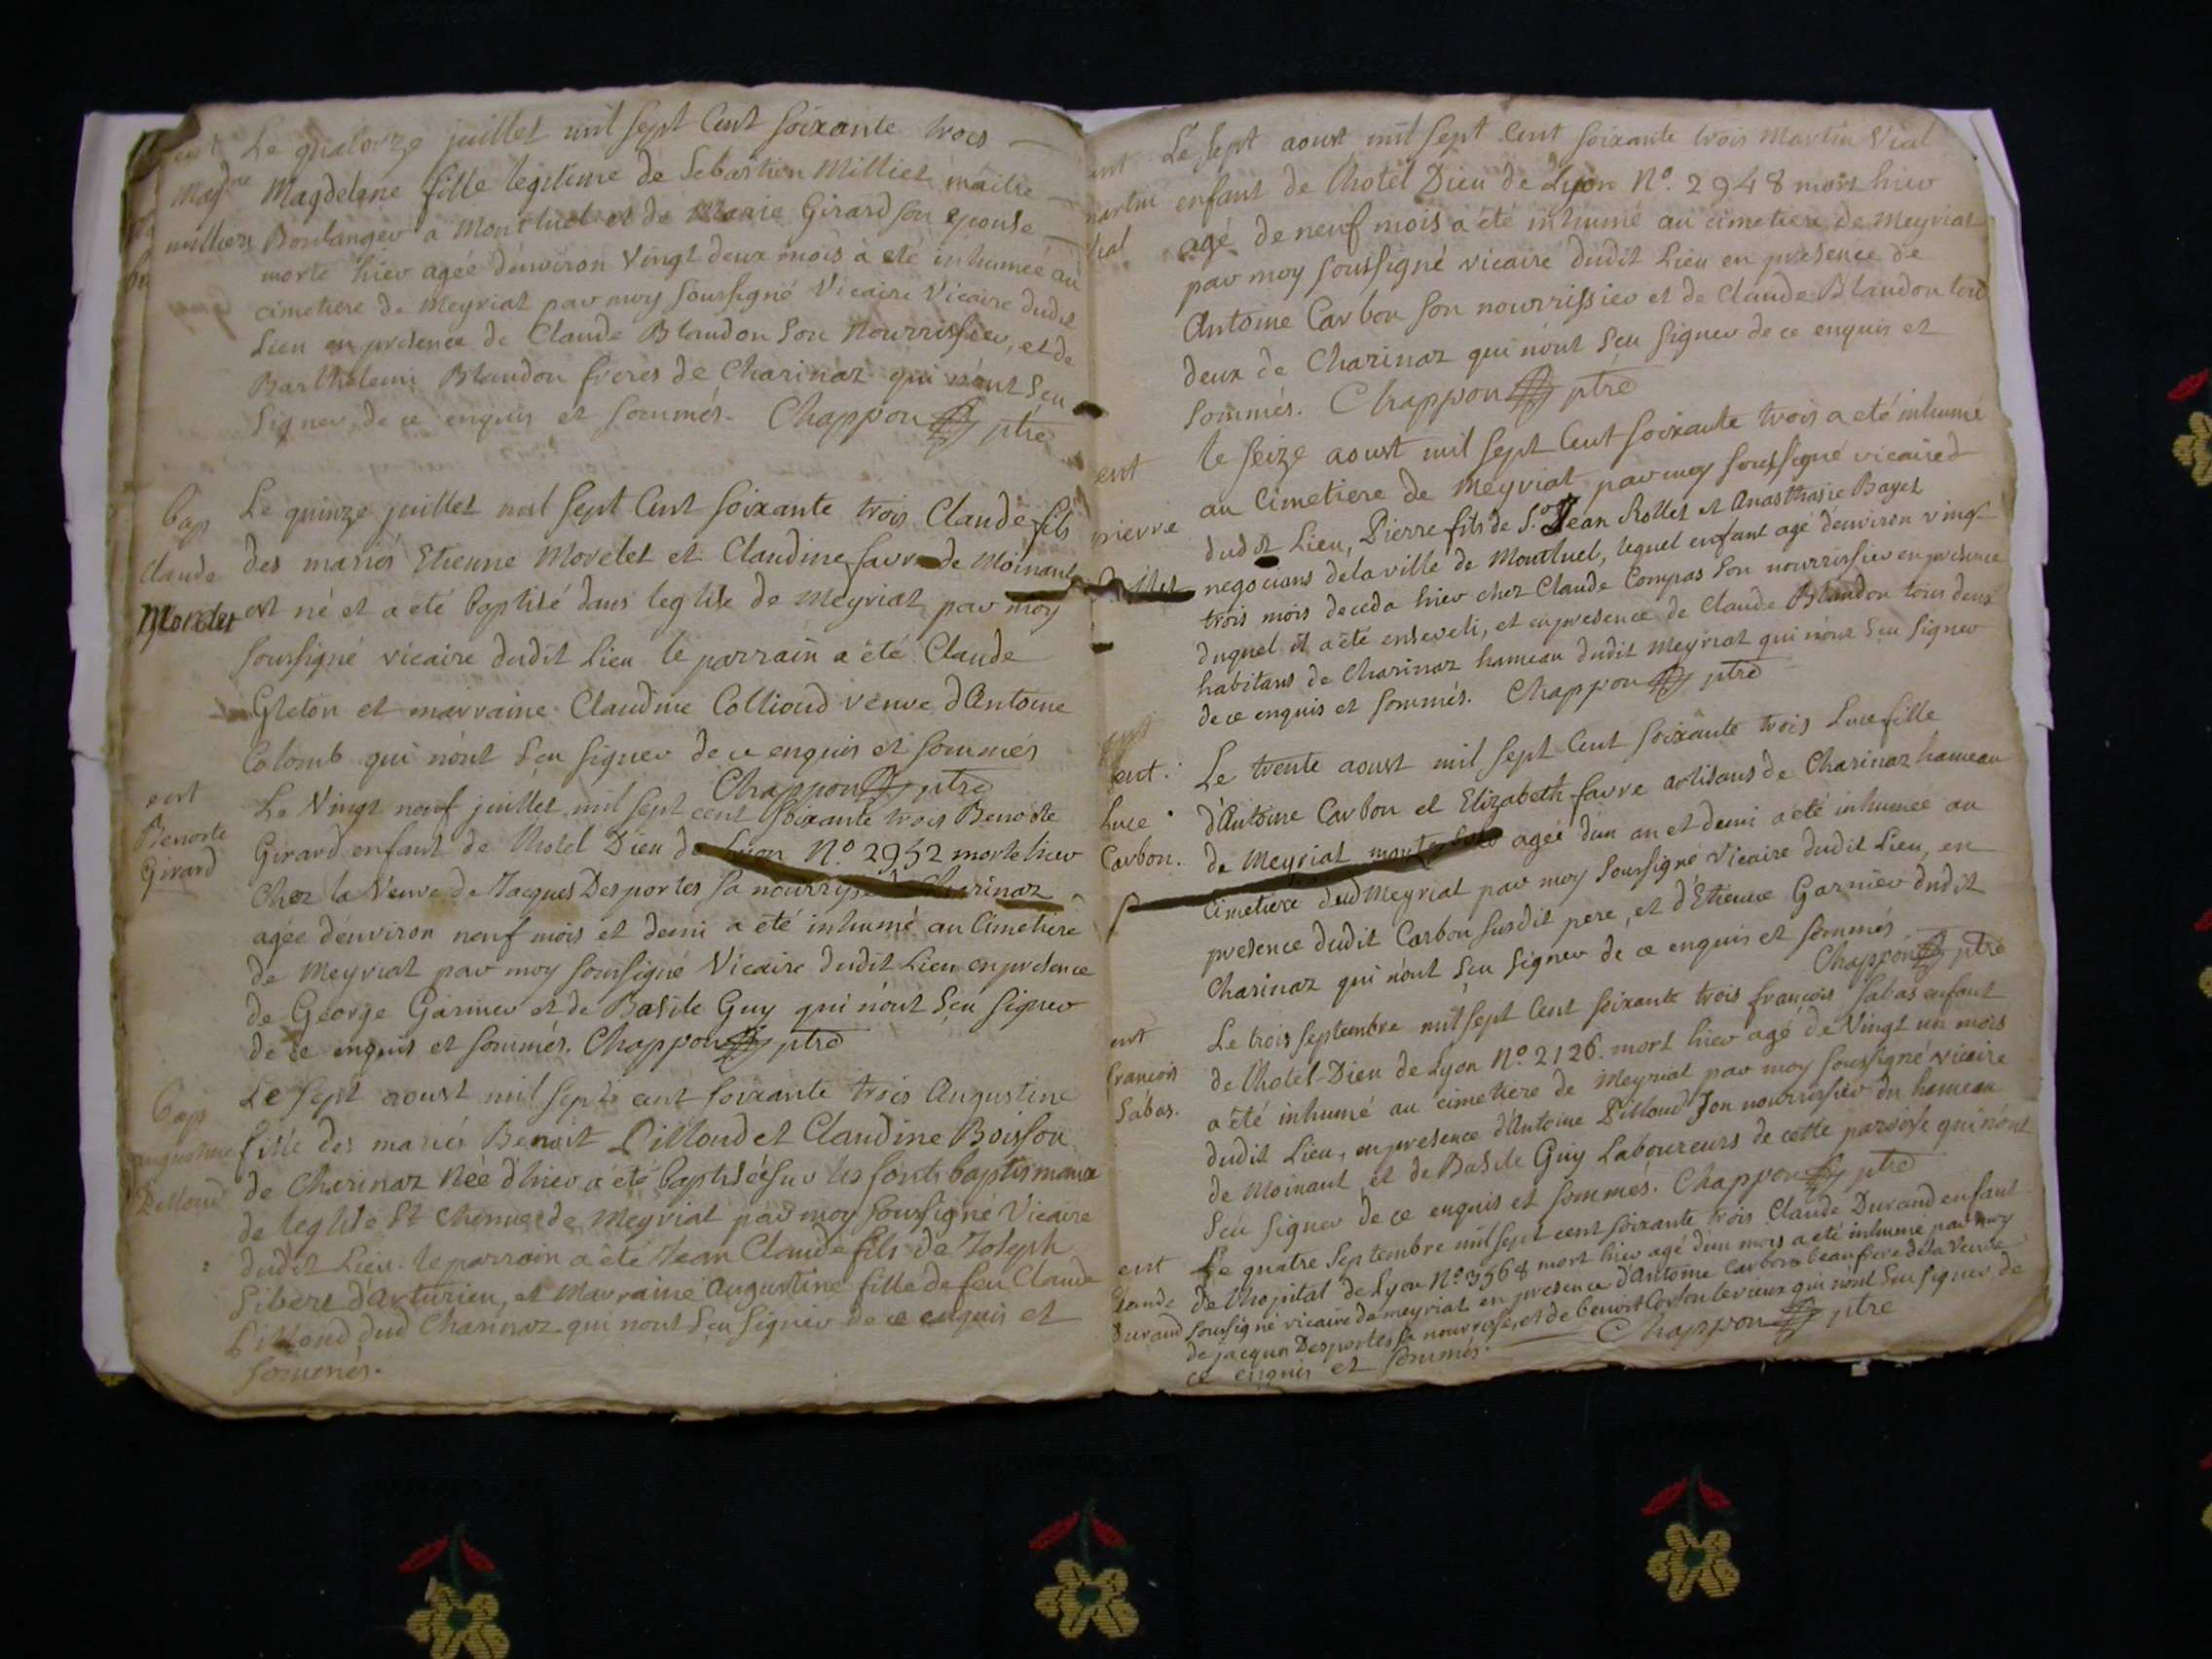 ent Le quatorze juillet mil sept Cent soixante trois
Magne Magdelene fille legitime de Sebastien Milliet maitre
milliers Boulanger a Montluel et de Marie Girard son epouse
morte hier agée d'environ vingt deux mois à eté inhumée au
cimetiere de Meyriat par moy soussigné Vicaire Vicaire dudit
Lieu en presence de Claude Blandon son Nourrissier, et de
Barthelemi Blandon freres de Charinaz qui n'ont sçu
signer de ce enquis et sommés. Chappon ptre
bap Le quinze juillet mil sept Cent soixante trois Claude fils
Claude des mariés Etienne Morelet et Claudine favre de Moinant
Morelet est né et a eté baptisé dans leglise de Meyriat par moy
soussigné vicaire dudit Lieu le parrain a été Claude
Gleton et marraine Claudine Collioud veuve d'Antoine
Colomb qui n'ont sçu signer de ce enquis et sommés
Chappon ptre
ent Le Vingt neuf juillet mil sept cent soixante trois Benoste
Benoste Girard enfant de l'hotel Dieu de Lyon N.o 2952 morte hier
Girard Chez la Veuve de Jacques Desportes sa nourrisse de Charinaz
agée d'environ neuf mois et demi a été inhumé au Cimetiere
de Meyriat par moy soussigné Vicaire dudit Lieu en presence
de George Garnier et de Basile Guy qui n'ont sçu signer
de ce enquis et sommés. Chappon ptre
bap Le sept aoust mil sept cent soixante trois Augustine
augustine fille des mariés Benoit Pilloud et Claudine Boisson
Pilloud de Charinaz Née d'hier a été baptisée sur les fonts baptismaux
de leglise St de Meyriat par moy soussigné Vicaire
dudit Lieu. le parrain a été Jean Claude fils de Joseph
Sibert d'arturieu, et Marraine Augustine fille de feu Claude
Pilloud dud Charinaz qui n'ont sçu signer de ce enquis et
sommés.
ent Le sept aoust mil sept Cent soixante trois Martin Vial
martin enfant de l'hotel Dieu de Lyon N.o 2948 mort hier
vial agé de neuf mois a été inhumé au cimetiere de Meyriat
par moy soussigné vicaire dudit Lieu en presence de
Antoine Carbon son nourrissier et de Claude Blandon tous
deux de Charinaz qui n'ont sçu signer de ce enquis et
sommés. Chappon ptre
ent le seize aoust mil sept Cent soixante trois a eté inhumé
au Cimetiere de Meyriat par moy soussigné vicaire d
pierre dudit Lieu, Pierre fils de S.r Jean Rollet et Anasthasie Bayet
negocians de la ville de Montluel, lequel enfant agé d'environ vingt
trois mois deceda hier chez Claude Compas son nourrissier en presence
duquel il a été enseveli, et en presence de Claude Blandon tous deux
habitans de Charinaz hameau dudit Meyriat qui n'ont sçu signer
de ce enquis et sommés. Chappon ptre
ent. Le trente aoust mil sept Cent soixante trois Luce fille
Luce d'Antoine Carbon et Elizabeth favre artisans de Charinaz hameau
Carbon. de Meyriat morte hier agée d'un an et demi a été inhumée au
Cimetiere dud Meyriat par moy soussigné Vicaire dudit Lieu, en
presence dudit Carbon susdit pere, et d'Etienne Garnier dudit
Charinaz qui n'ont sçu signer de ce enquis et sommés
Chappon ptre
ent Le trois septembre mil sept Cent soixante trois françois Sabas enfant
francois de l'hotel-Dieu de Lyon N.o 2126. mort hier agé de Vingt un mois
Sabas. a été inhumé au cimetiere de Meyriat par moy soussigné vicaire
dudit Lieu, en presence d'Antoine Pilloud son nourrissier du hameau
de Moinant et de Basile Guy Laboureurs de cette paroisse qui n'ont
sçu signer de ce enquis et sommés. Chappon ptre
ent Le quatre Septembre mil sept cent soixante trois Claude Durand enfant
Claude de l'hopital de Lyon N.o 3568 mort hier agé d'un mois a eté inhumé par moy
Durand soussigné vicaire de meyriat en presence d'Antoine Carbon beaufrere de la Veuve
de jacques Desportes sa nourrisse, et de benoist Carbon le vieux qui n'ont sçu signer de
ce enquis et sommés. Chappon ptre